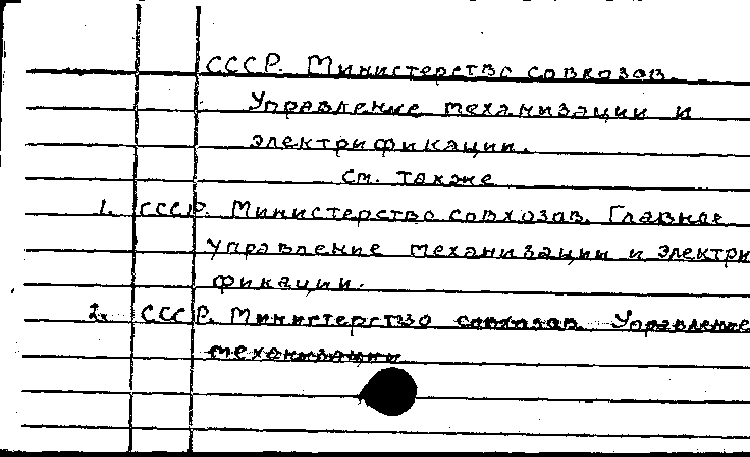 СССР. Министерство совхозов.
Управление механизации и
электрификации.
см. также
1. СССР. Министерство совхозов. Главное
управление механизации и электри
фикации.
2. СССР. Министерство совхозов. Управление
механизации